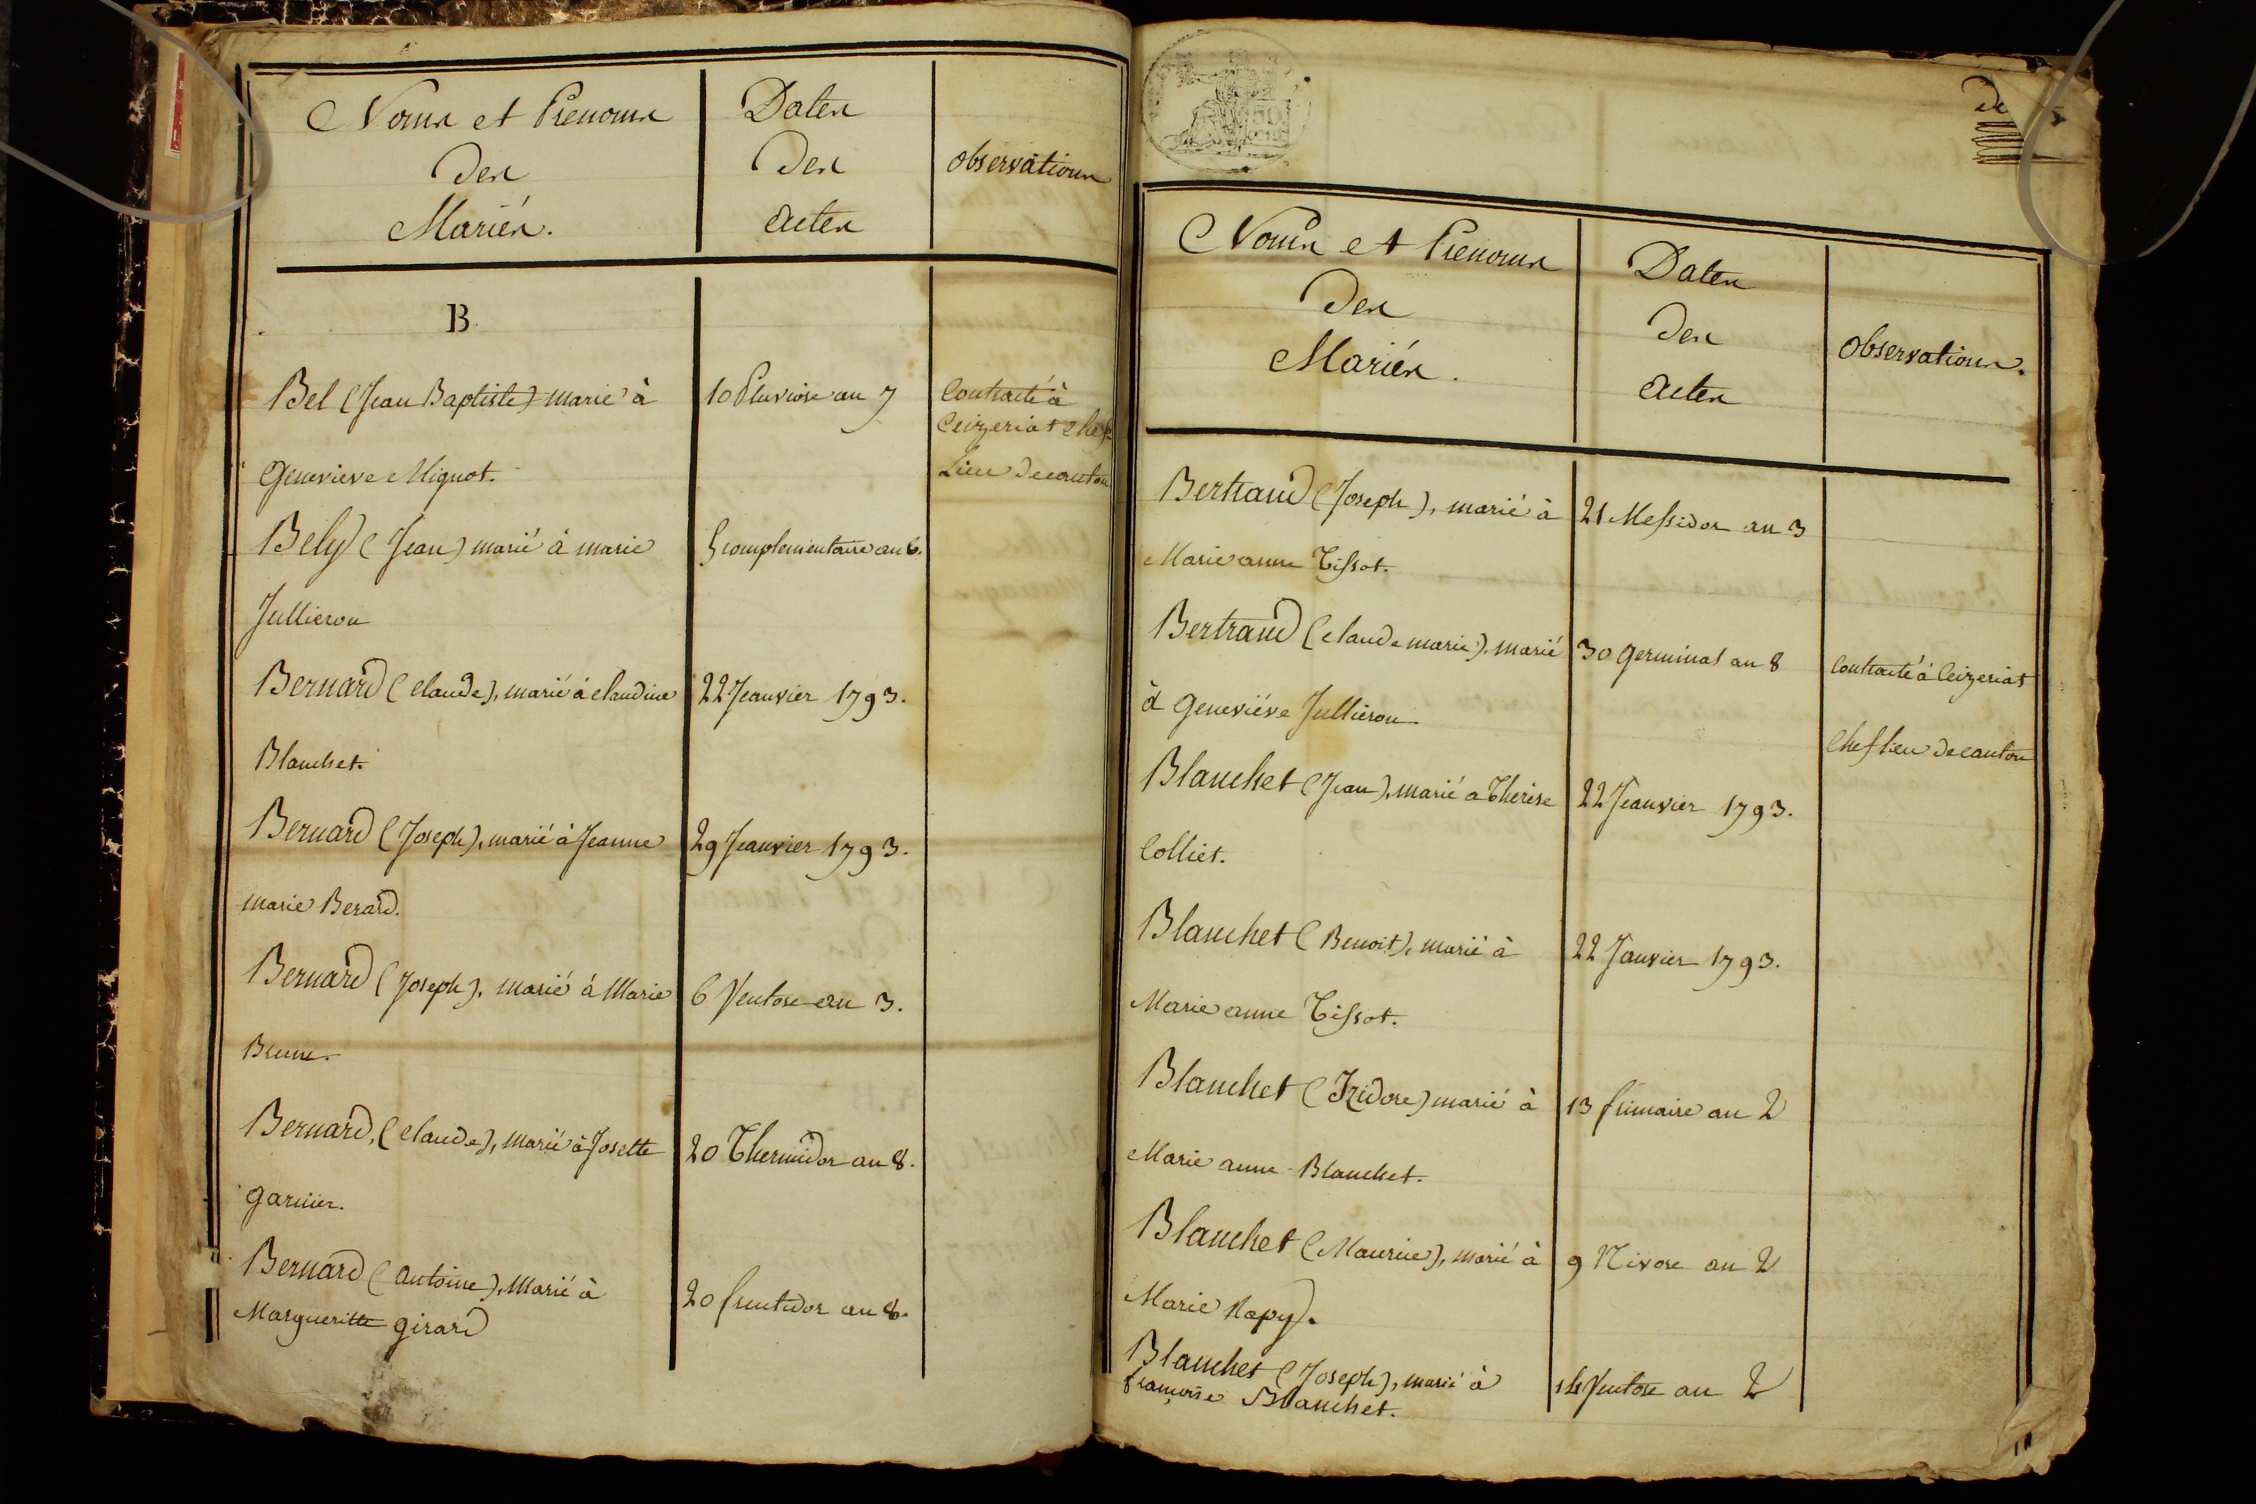 Noms et Prenoms
des
Mariés.
Dates
des
actes
observations
B
Bel (Jean Baptiste) marié à
Genevieve Mignot.
10 Pluviose an 7
Contracté à
Ceizeriat chef
Lieu de canton
Bely (Jean) marié à marie
Jullieron
5 complementaire an 6.
Bernard (Claude), marié à claudine
Blanchet.
22 Jeanvier 1793.
Bernard (Joseph), marié à Jeanne
marie Berard.
29 Jeanvier 1793.
Bernard (Joseph), marié à Marie
6 Ventose an 3.
Bernard, (Claude), marié à Josette
garnier.
20 Thermidor an 8.
Bernard (antoine), Marié à
Margueritte girard
20 fructidor an 8.
50
de
Noms et Prenoms
des
Mariés.
Dates
des
actes
observations.
Bertrand (Joseph), marié à
Marie anne Tissot.
21 Messidor an 3
Bertrand (claude marie), marié
à Geneviéve Jullieron
30 Germinal an 8
Contracté à Ceizeriat
Chef lieu de canton
Blanchet (Jean), marié a Therèse
Colliet.
22 Jeanvier 1793.
Blanchet (Benoit), marié à
Marie anne Tissot.
22 Janvier 1793.
Blanchet (Izidore) marié à
Marie anne Blanchet.
13 frimaire an 2
Blanchet (Maurice), marié à
Marie Rapy.
9 Nivose an 2
Blanchet (Joseph), marié à
françoise Blanchet.
Ventose an 2